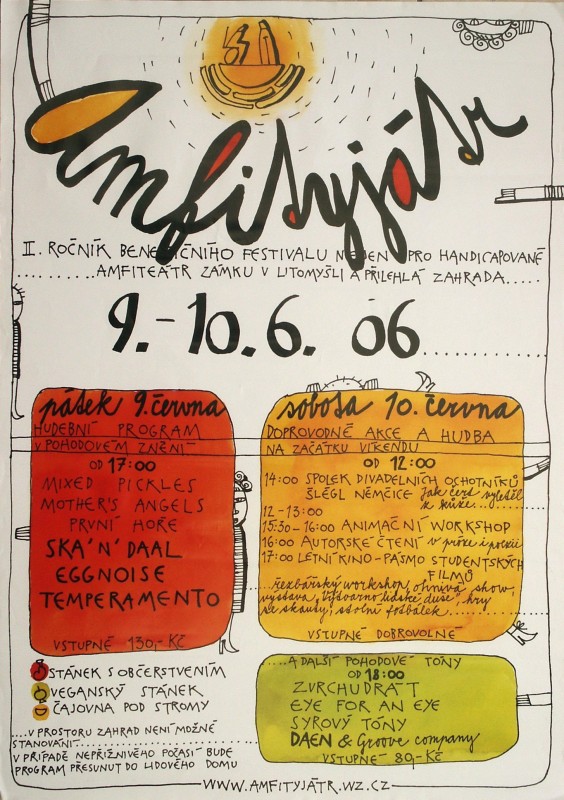 Amfityjátr
II. ROČNÍK BENEFIČNÍHO FESTIVALU NEJEN PRO HANDICAPOVANÉ
..........AMFITEÁTR ZÁMKU V LITOMYŠLI A PŘILEHLÁ ZAHRADA.....
9.-10.6. 06..............
pátek 9. června
HUDEBNÍ PROGRAM
V POHODOVÉM ZNĚNÍ
OD 17:00
MIXED PICKLES
MOTHER'S ANGELS
PRVNÍ HOŘE
SKA'N'DAAL
EGGNOISE
TEMPERAMENTO
VSTUPNÉ 130,-KČ
sobota 10. června
DOPROVODNÉ AKCE A HUDBA
NA ZAČÁTKU VÍKENDU
OD 12:00
14:00 SPOLEK DIVADELNÍCH OCHOTNÍKŮ
ŠLÉGL NĚMČICE Jak čert vyletěl
z kůže...
12-13:00
15:30-16:00 ANIMAČNÍ WORKSHOP
16:00 AUTORSKÉ ČTENÍ v próze i poezii
17:00 LETNÍ KINO-PÁSMO STUDENTSKÝCH
FILMŮ
...řezbářský workshop, ohnivá show,
výstava "Výtvarno lidské duše", hry
se skauty, stolní fotbálek.........
VSTUPNÉ DOBROVOLNÉ
....A DALŠÍ POHODOVÉ TÓNY
OD 18:00
ZVRCHUDRÁT
EYE FOR AN EYE
SYROVÝ TÓNY
DAEN & Groove company
VSTUPNÉ 80,-KČ
STÁNEK S OBČERSTVENÍM
VEGANSKÝ STÁNEK
ČAJOVNA POD STROMY
....V PROSTORU ZAHRAD NENÍ MOŽNÉ
STANOVÁNÍ...................
V PŘÍPADĚ NEPŘÍZNIVÉHO POČASÍ BUDE
PROGRAM PŘESUNUT DO LIDOVÉHO DOMU
WWW.AMFITYJÁTR.WZ.CZ